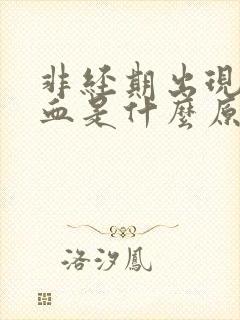 非经期出現
血是什麼原
洛汐鳳